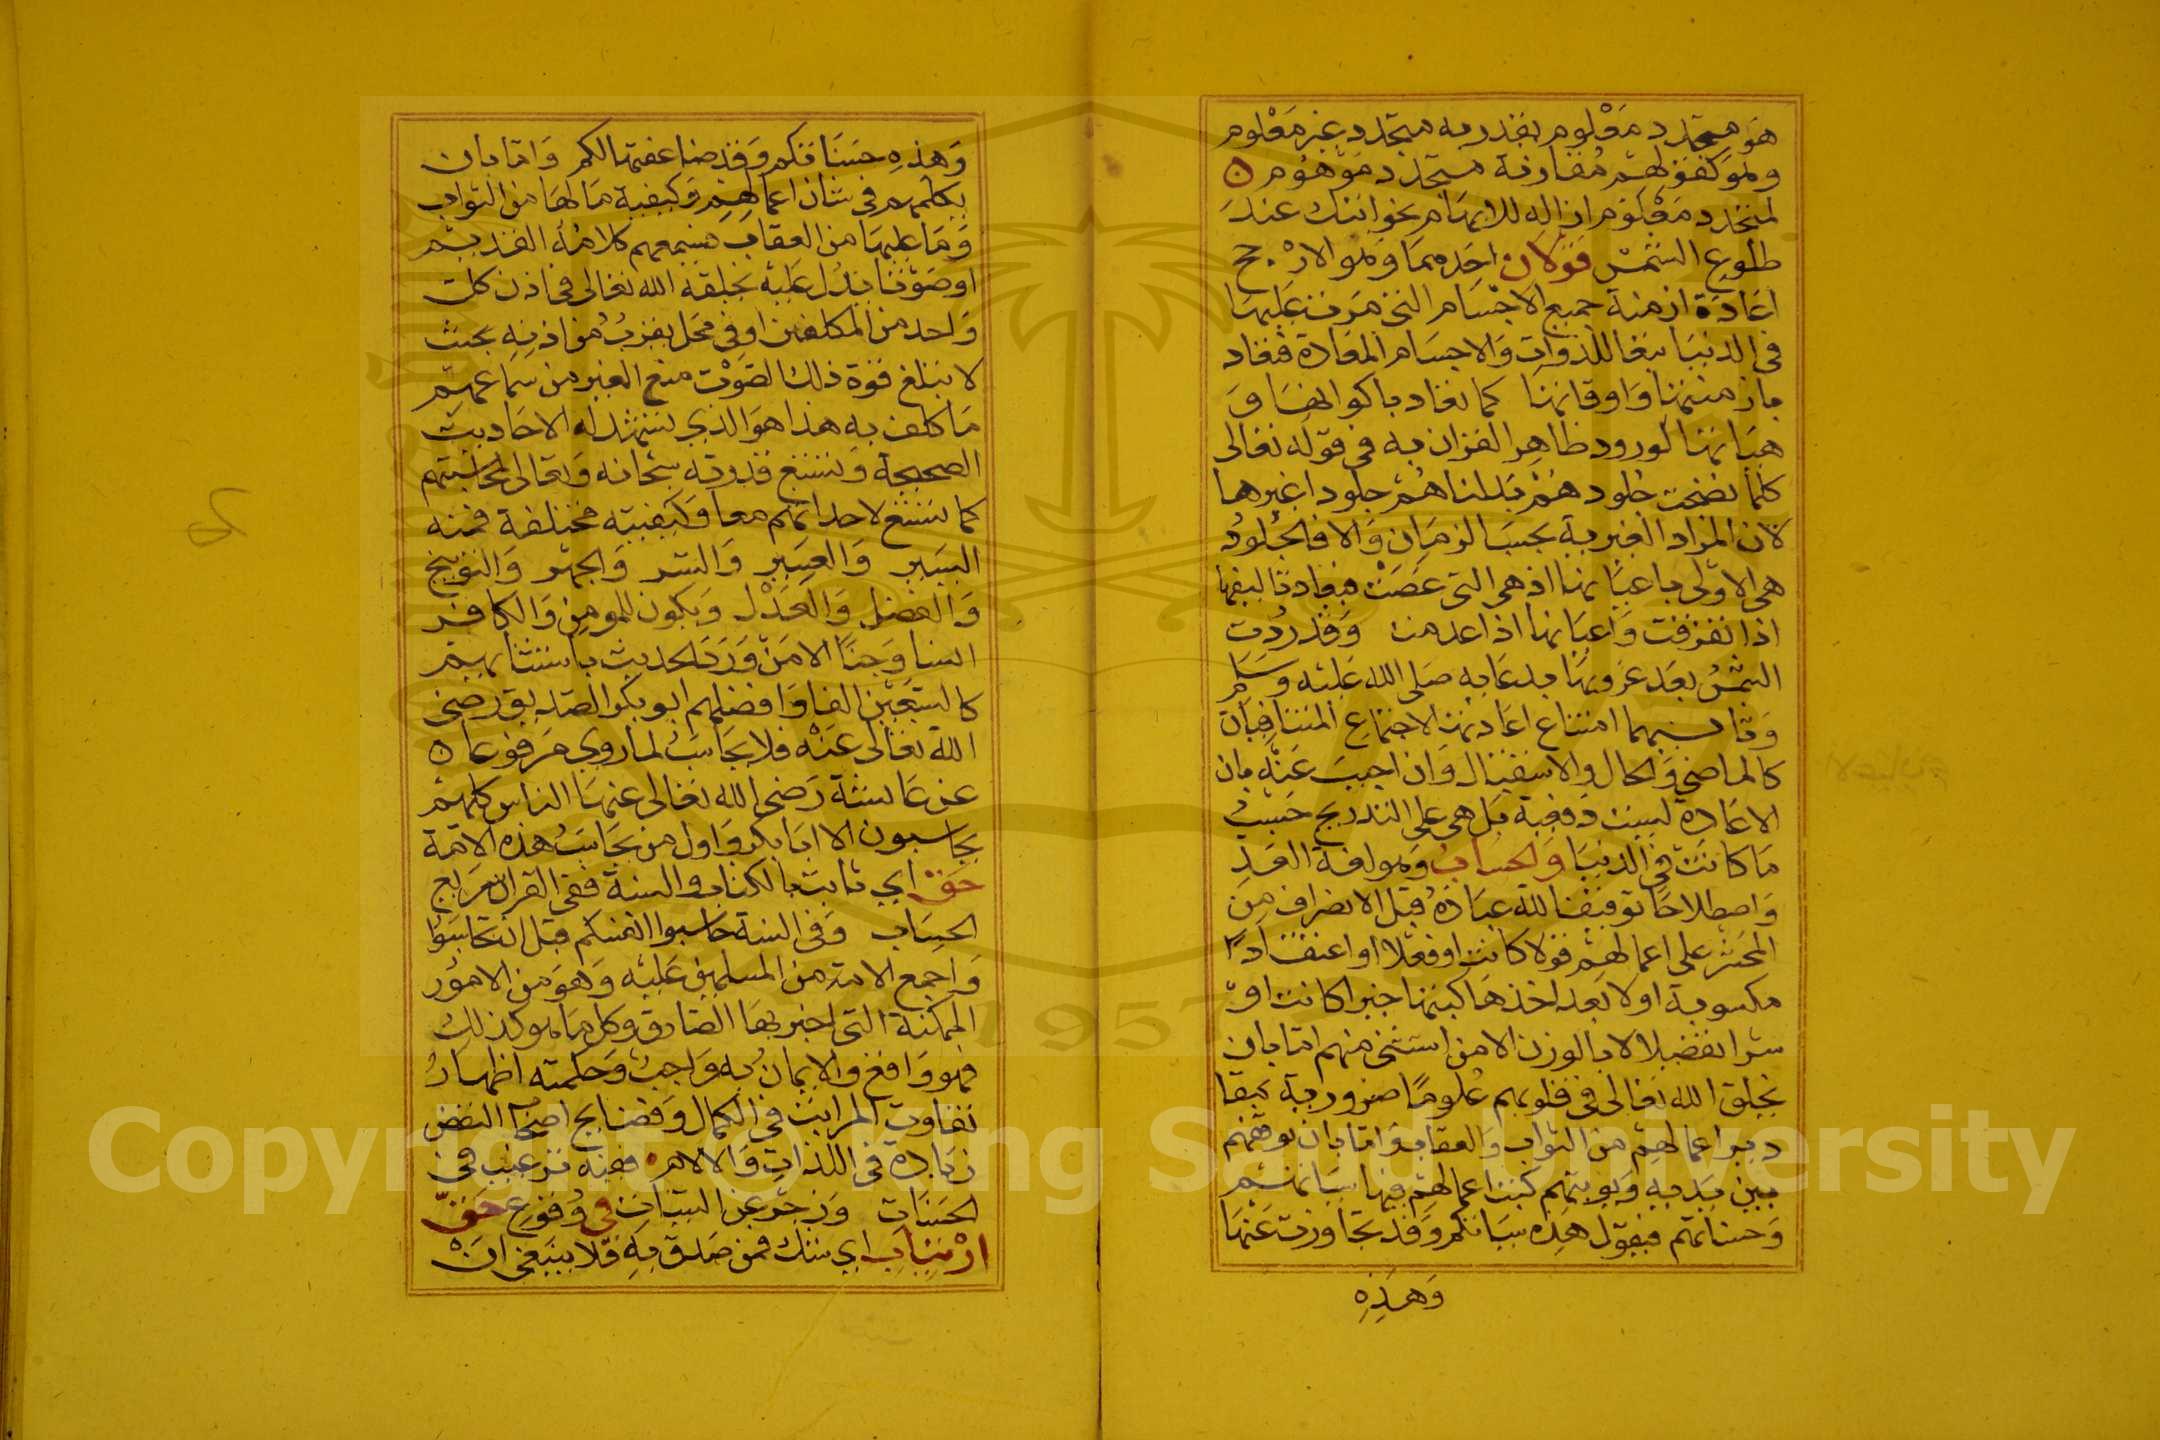 هو متجدد معلوم يقدر به متجدد غير معلوم
ولهو كقولهم مقارنة متجدد موهوم
لمتجدد معلوم ازالة للابهام نحو اتيتك عند
طلوع الشمس قولان احدهما وهو الارجح
اعادة ازمنة جميع الاجسام التي مرت عليها
في الدنيا تبعا للذوات والاجسام المعادة فتعاد
بازمنتها واوقاتها كما تعاد باكوانها و
هياتها لورود ظاهر القران به في قوله تعالى
كلما نضجت جلودهم بدلناهم جلودا غيرها
لان المراد الغيرية بحسب الزمان والا فالجلود
هي الاولى باعيانها اذ هي التي عصت فيعاد تاليفها
اذا تفرقت واعيانها اذا عدمت وقد ردت
الشمس بعد غروبها بدعايه صلى الله عليه وسلم
وثانيهما امتناع اعادتها لاجتماع المتنافيات
كالماضي والحال والاستقبال وان اجيب عنه بان
الاعادة ليست دفعية بل هي على التدريج حسب
ما كانت في الدنيا والحساب وهو لغة العد
واصطلاحا توقيف الله عباده قبل الانصراف من
المحشر على اعمالهم قولا كانت او فعلا او اعتقادا
مكسوبة اولا بعد اخذها كتبها خيرا كانت او
شرا تفضيلا لا بالوزن الا من استثنى منهم اما بان
يخلق الله تعالى في قلوبهم علوما ضرورية بمقا
دير اعمالهم من الثواب والعقاب واما بان يوقفهم
بين يديه ويوتيهم كتب اعمالهم فيها سياتهم
وحسناتهم فيقول هذه سياتكم وقد تجاوزت عنها
وهذه
وهذه حسناتكم وقد ضاعفتها لكم واما بان
يكلمهم في شان اعمالهم وكيفية ما لها من الثواب
وما عليها من العقاب فيسمعهم كلامه القديم
او صوتا يدل عليه يخلقه الله تعالى في اذن كل
واحد من المكلفين او في محل يقرب من اذنه بحيث
لا تبلغ قوة ذلك الصوت منع الغير من سماعهم
ما كلف به هذا هو الذي تشهد له الاحاديث
الصحيحة وتتسع قدرته سبحانه وتعالى لمحاسبتهم
كما تتسع لاحداثهم معا وكيفيته مختلفة فمنه
اليسير والعسير والسر والجهر والتوبيخ
والفضل والعدل ويكون للمومن والكافر
انسا وجنا الا من ورد الحديث باستثنايهم
كالسبعين الفا وافضلهم ابو بكر الصديق رضي
الله تعالى عنه فلا يحاسب لما روي مرفوعا
عن عايشة رضي الله تعالى عنها الناس كلهم
يحاسبون الا ابا بكر واول من يحاسب هذه الامة
حق اي ثابت بالكتاب والسنة ففي القران سريع
الحساب وفي السنة حاسبوا انفسكم قبل ان تحاسبوا
واجمع الامة من المسلمين عليه وهو من الامور
الممكنة التي اخبر بها الصادق وكل ما هو كذلك
فهو واقع والايمان به واجب وحكمته اظهار
تفاوت المراتب في الكمال وفضايح اصحاب النقص
زيادة في اللذات والالام ففيه ترغيب في
الحسنات وزجر عن السيات في وقوع حق
ارتياب اي شك فمن صدق به فلا ينبغي ان
Copyright © King Saud University
1957